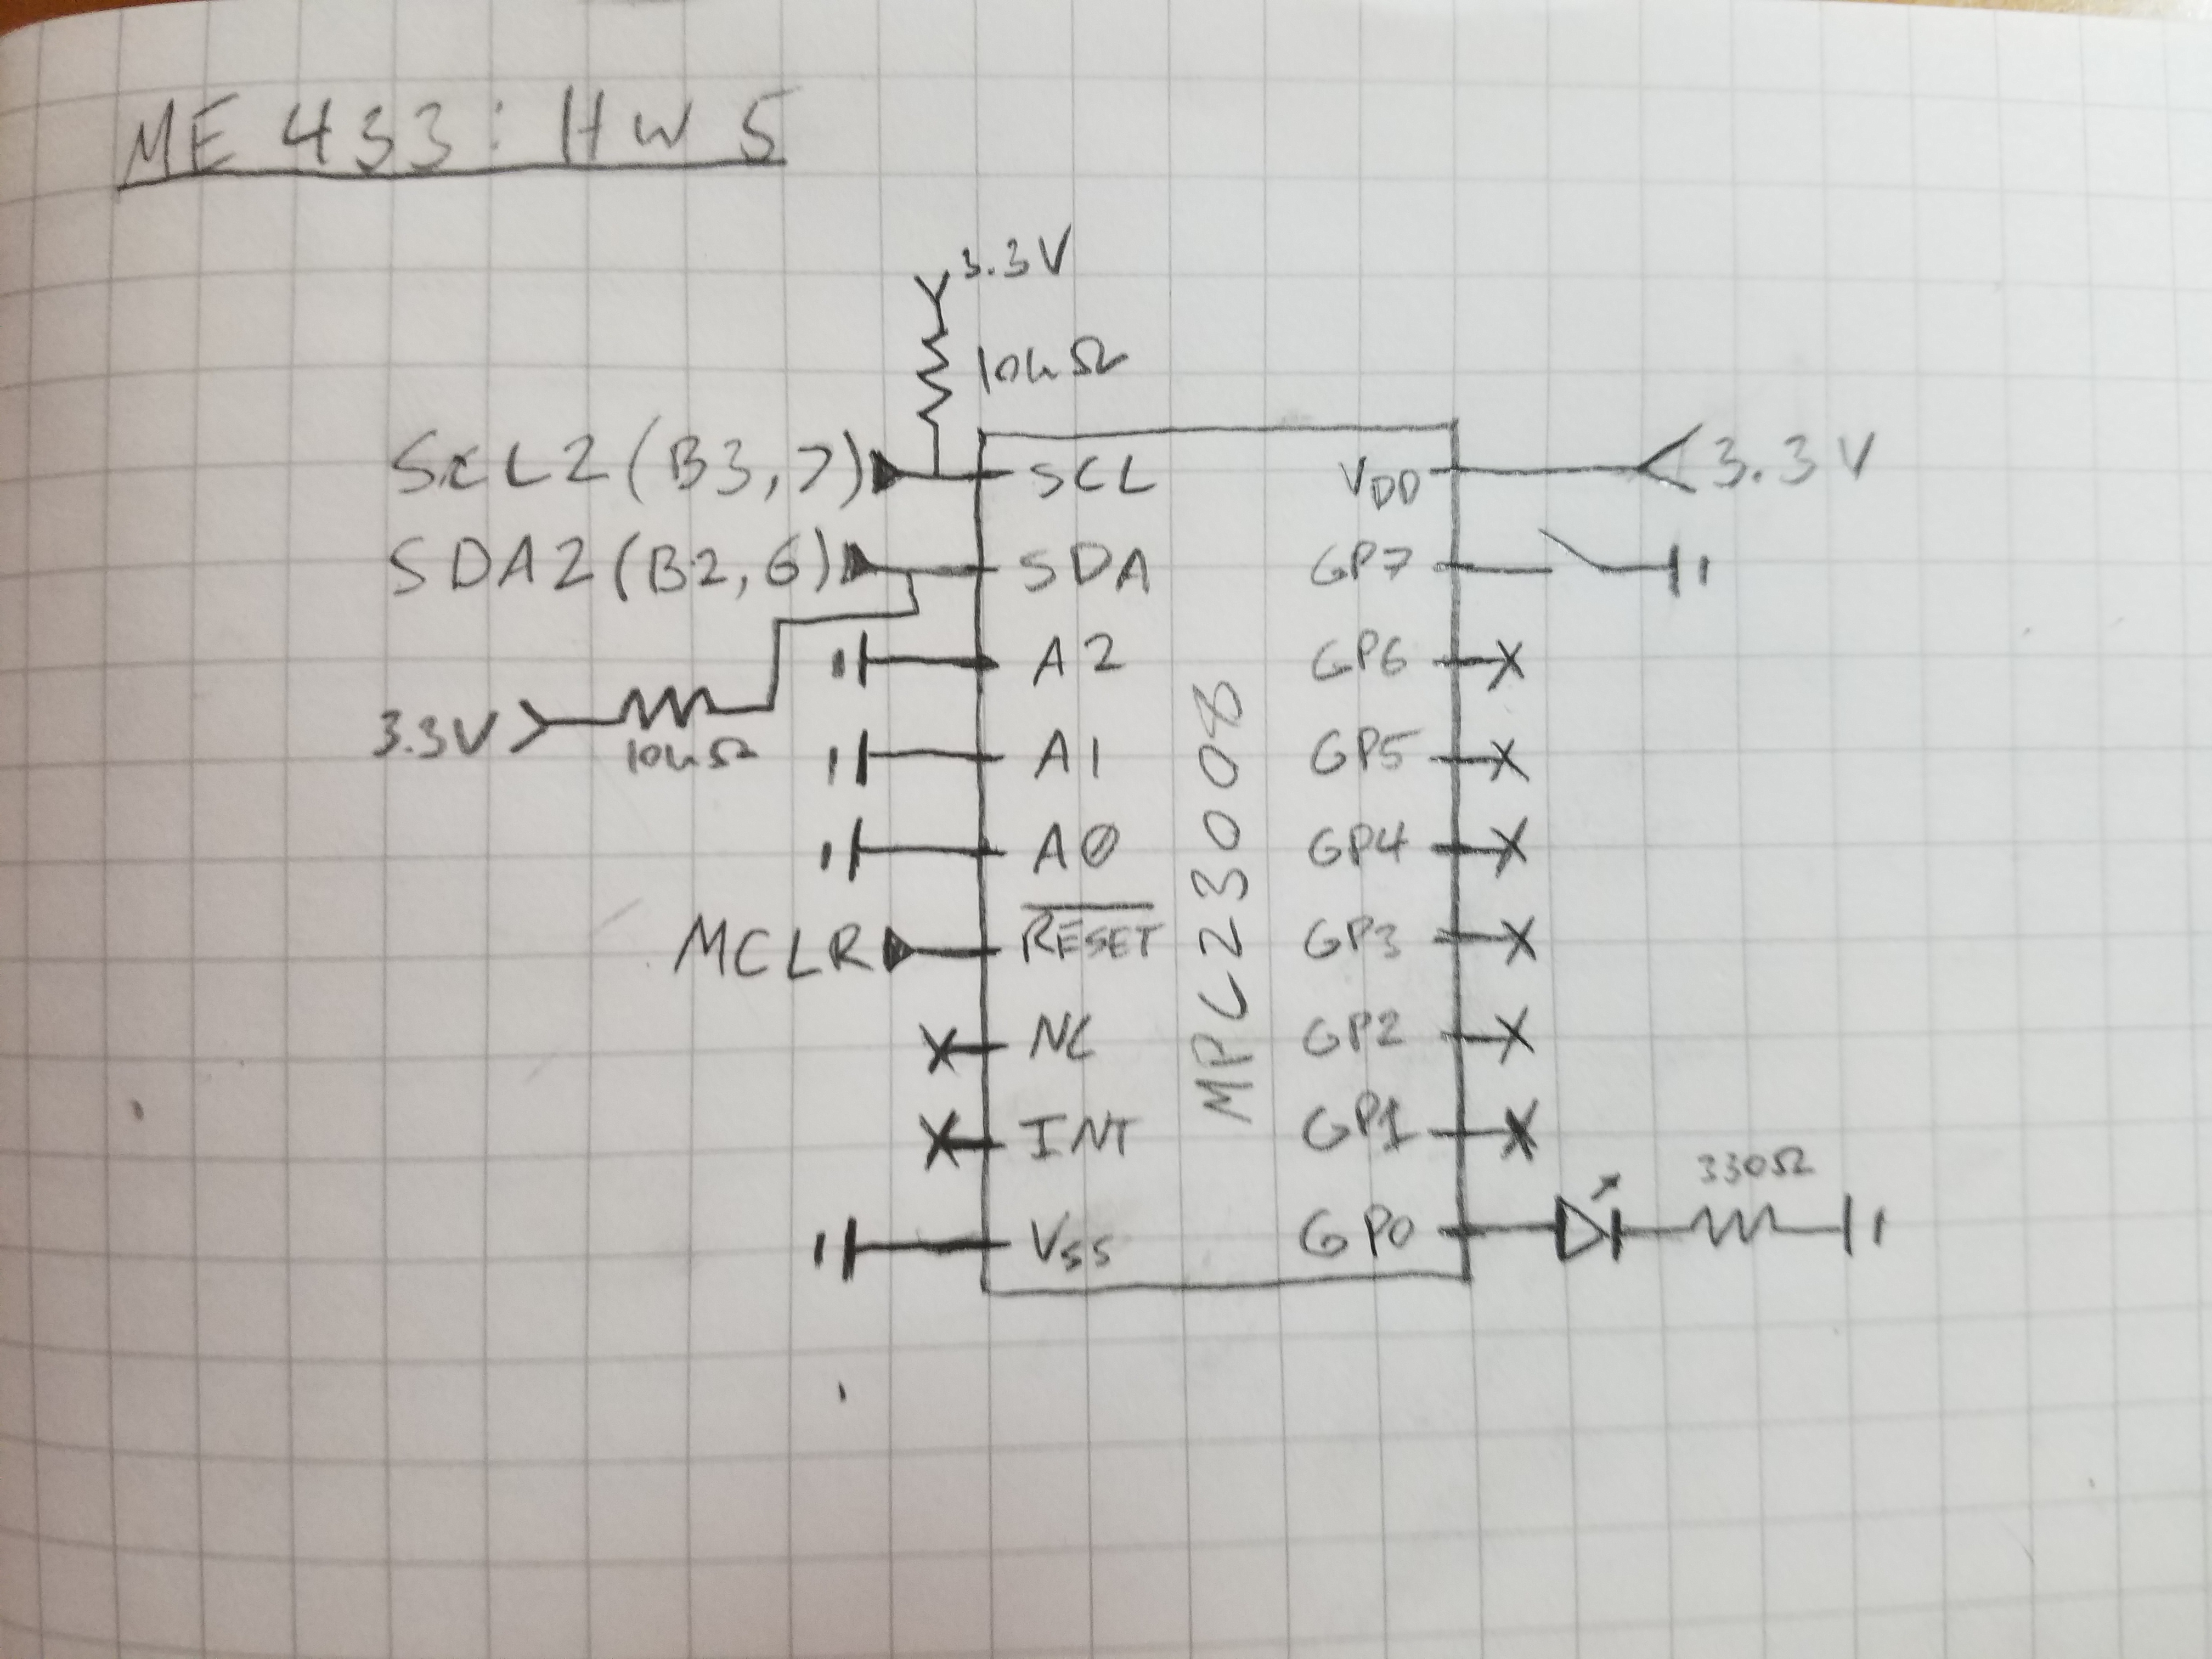 ME 433: HW 5
3.3V
10kΩ
SCL2 (B3,7)
SDA2 (B2,6)
3.3V
10kΩ
MCLR
SCL
SDA
A2
A1
A0
RESET
NC
INT
VSS
MPC23008
VDD
GP7
GP6
GP5
GP4
GP3
GP2
GP1
GP0
3.3V
330Ω